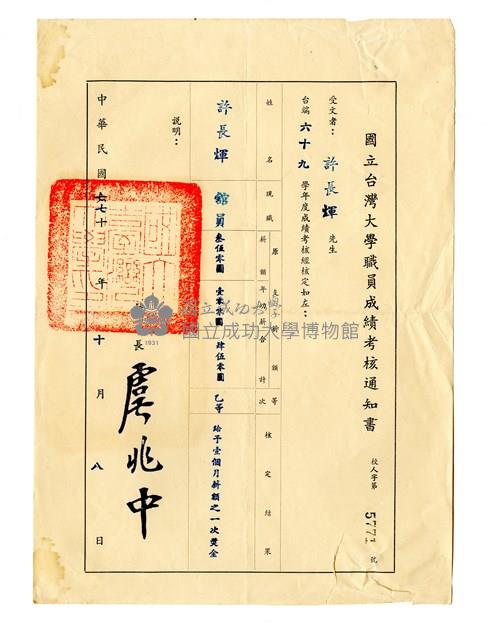 國立台灣大學職員成績考核通知書
校人字第 5771 號
受文者：許長輝 先生
台端六十九學年度成績考核經核定如左：
姓名 現職 原支薪額 薪額 年功薪 合計 等次 核定結果
許長輝 館員 叁伍零圓 壹零零圓 肆伍零圓 乙等 給予壹個月薪額之一次獎金
說明：
長 虞兆中
中華民國七十年十月八日
國立成功大學博物館
1931